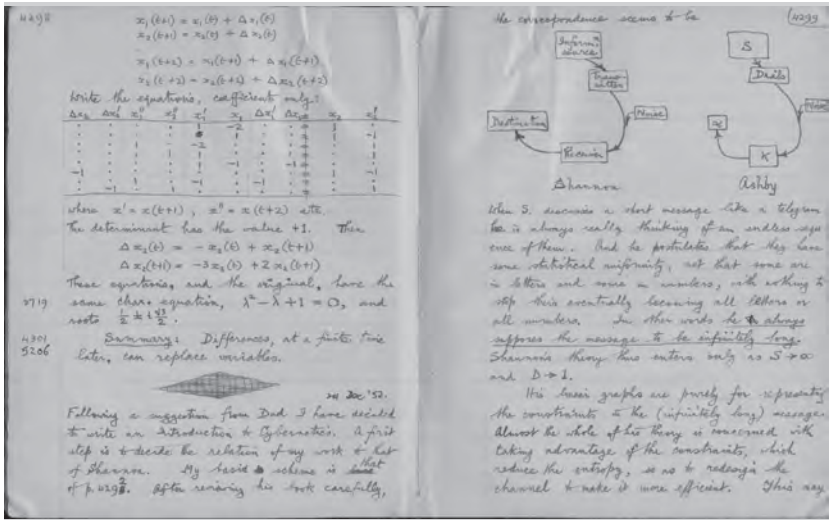 4298
x₁(t+1) = x₁(t) + Δx₁(t)
x₂(t+1) = x₂(t) + Δx₂(t)
x₁(t+2) = x₁(t+1) + Δx₁(t+1)
x₂(t+2) = x₂(t+1) + Δx₂(t+1)
Write the equations, coefficients only:
where x' = x(t+1), x" = x(t+2) etc.
The determinant has the value +1. Then
Δx₂(t) = -x₂(t) + x₂(t+1)
Δx₂(t+1) = -3x₂(t) + 2x₂(t+1)
These equations, and the original, have the
3719 same char. equation, λ² - λ + 1 = 0, and
roots
4301 Summary: Differences, at a finite time
5206 later, can replace variables.
Dec '52.
Following a suggestion from Dad I have decided
to write an Introduction to Cybernetics. A first
step is to decide the relation of my work to that
of Shannon. My basic scheme is that
of p. After reviewing his book carefully,
the correspondence seems to be 4299
Informⁿ source
Transmitter
Noise
Destination
Receiver
Shannon
S
Noise
K
Ashby
When S. discusses a short message like a telegram
he is always really thinking of an endless sequ-
ence of them. And he postulates that they have
some statistical uniformity, not that some are
in letters and some in numbers, with nothing to
stop this eventually becoming all letters or
all numbers. In other words he always
supposes the message to be infinitely long.
Shannon's theory thus enters only as S → ∞
and D → 1.
His basic graphs are purely for representing
the constraints in the (infinitely long) message.
Almost the whole of his theory is concerned with
taking advantage of the constraints, which
reduce the entropy, so as to redesign the
channel to make it more efficient. This may